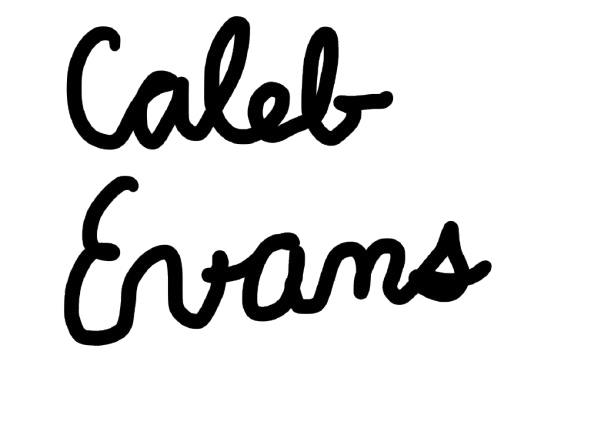 Caleb
Evans